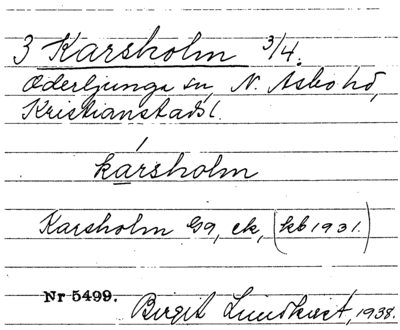 3 Karsholm 3/4.
Oderljunga sn, N. Åsbo hd,
Kristianstads l.
kársholm
Karsholm lg, ek, (kb 1931.)
Nr 5499. Birgit Lundkvist, 1938.